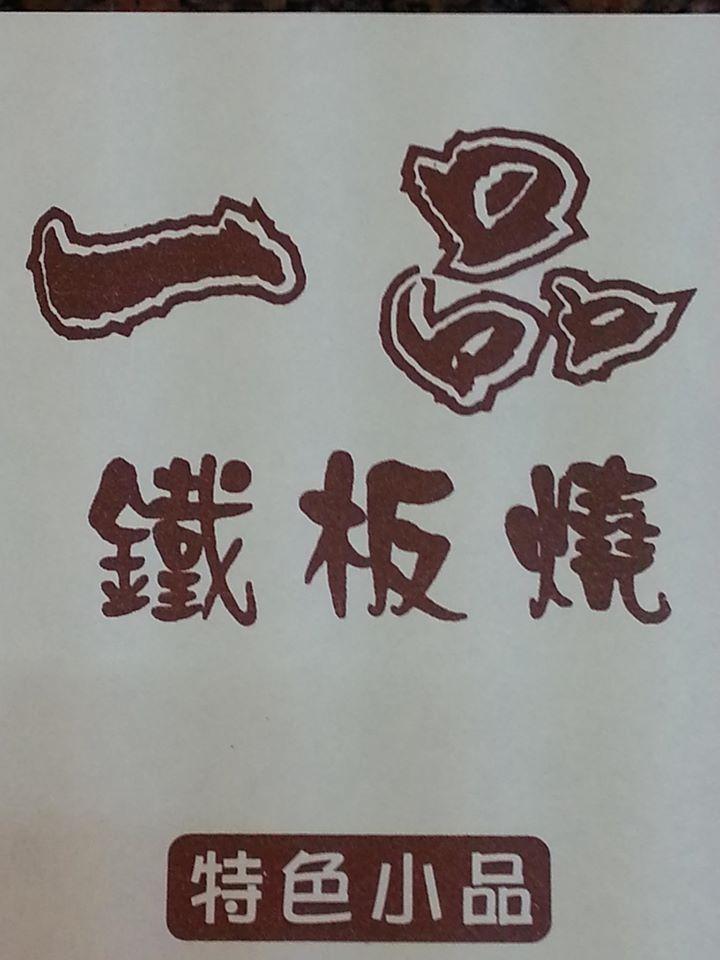 一品
鐵板燒
特色小品